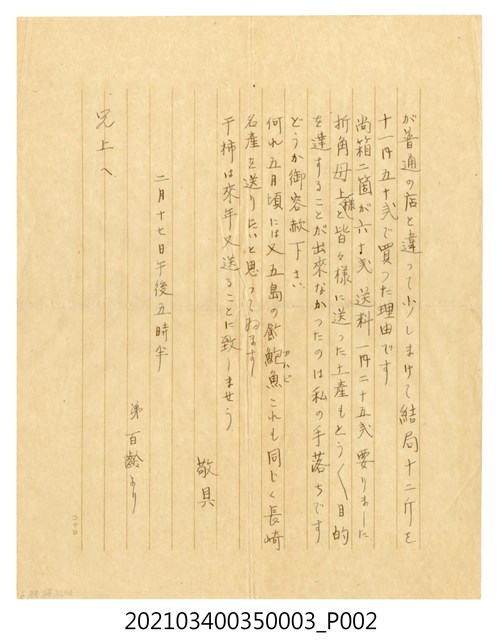 が普通の店と違って少しまけて結局十二斤を
十一円五十弐で買つた理由です
尚箱二箇が六十弐 送料一円二十五弐要りました
折角母上様と皆々様に送った土産もとう〱目的
を達することが出来なかつたのは私の手落ちです
どうか御容赦下さい
何れ五月頃には又五島の 鮑魚これも同じく長崎
名産を送りたいと思ってゐます
干柿は来年又送ることに致しませう
敬具
二月十七日午後五時半
弟百齢より
兄上へ
202103400350003_P002